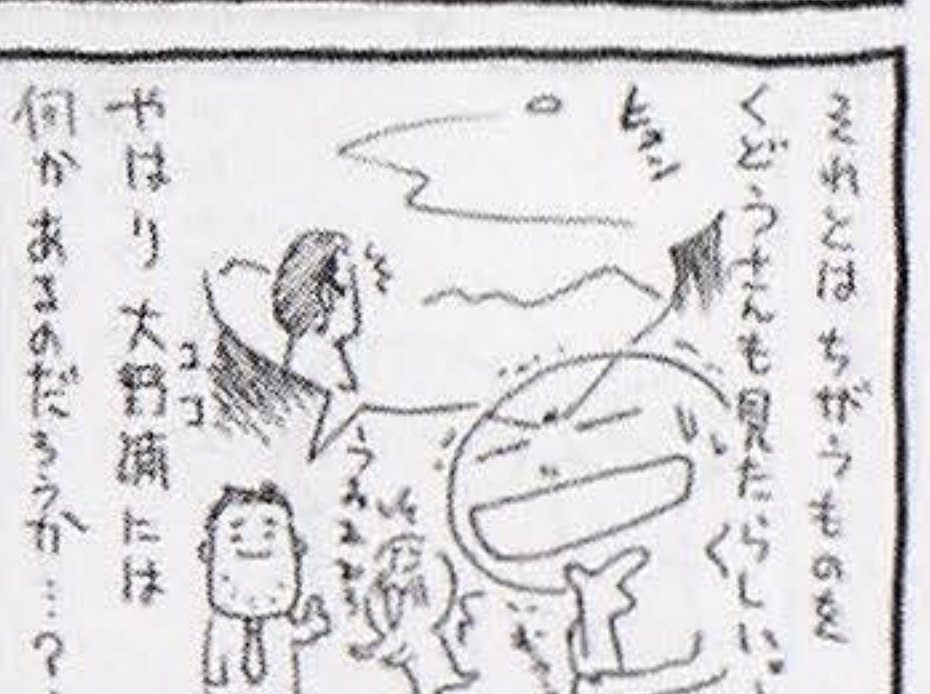 それとはちがうものを
くどうさんも見たらしい。
ココ
やはり大野浦には
何かあるのだろうか…?